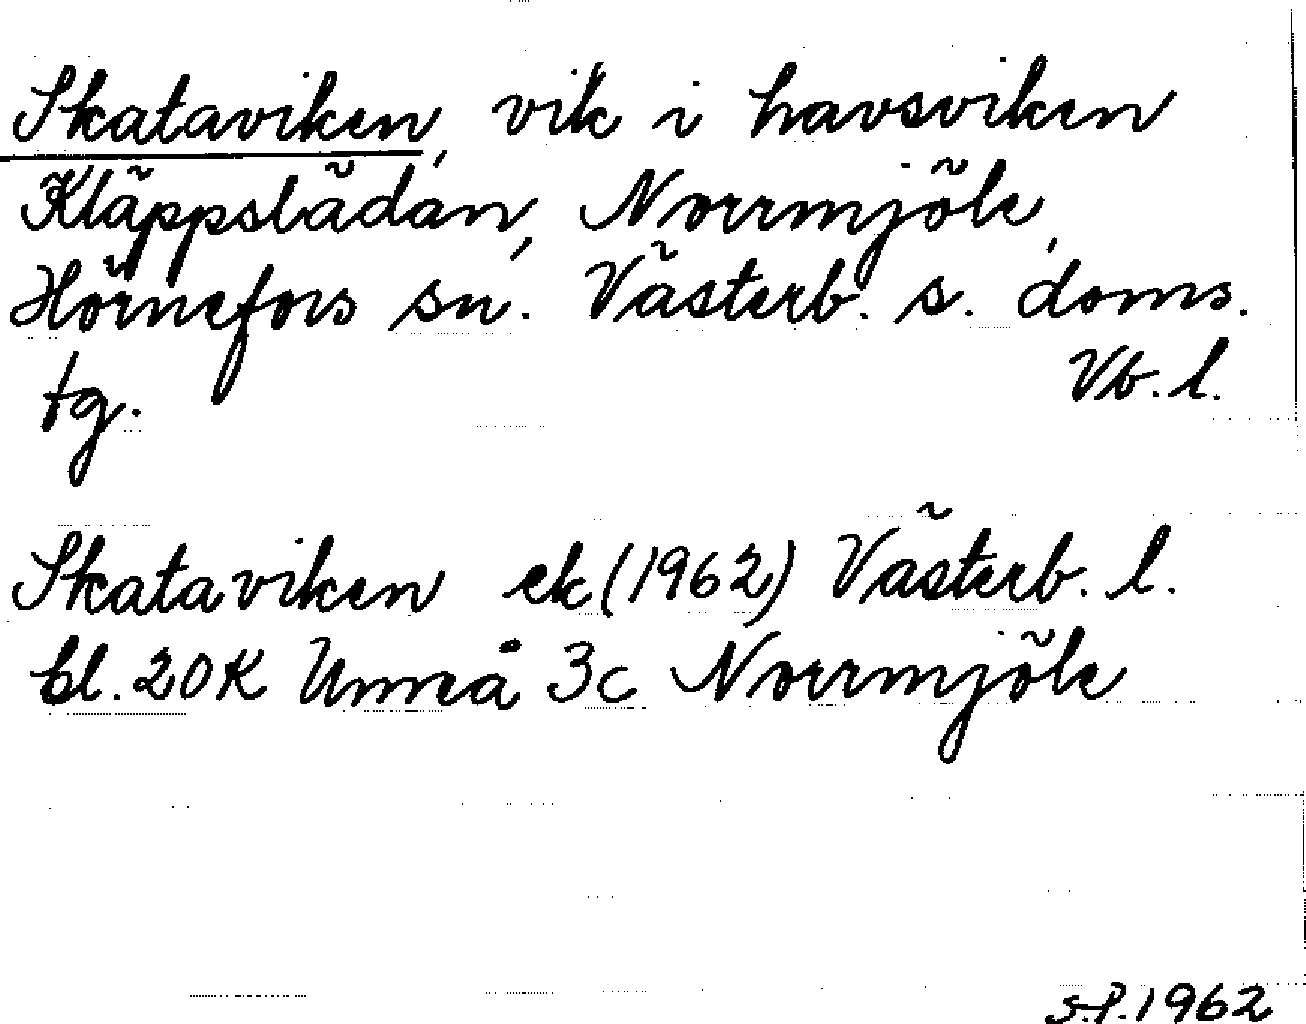 Skataviken, vik i havsviken
Kläppslädan, Norrmjöle,
Hörnefors sn. Västerb. s. doms.
tg. Vb. l.
Skataviken ek (1962) Västerb. l.
bl. 20K Umeå 3c Norrmjöle
S.P. 1962